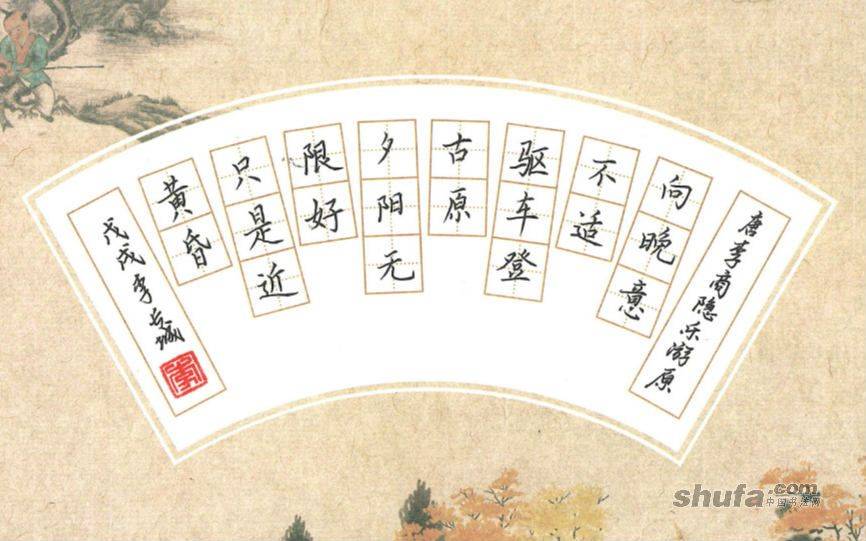 唐李商隐乐游原
向晚意
不适
驱车登
古原
夕阳无
限好
只是近
黄昏
戊戌李
shufa.com
中国书法网